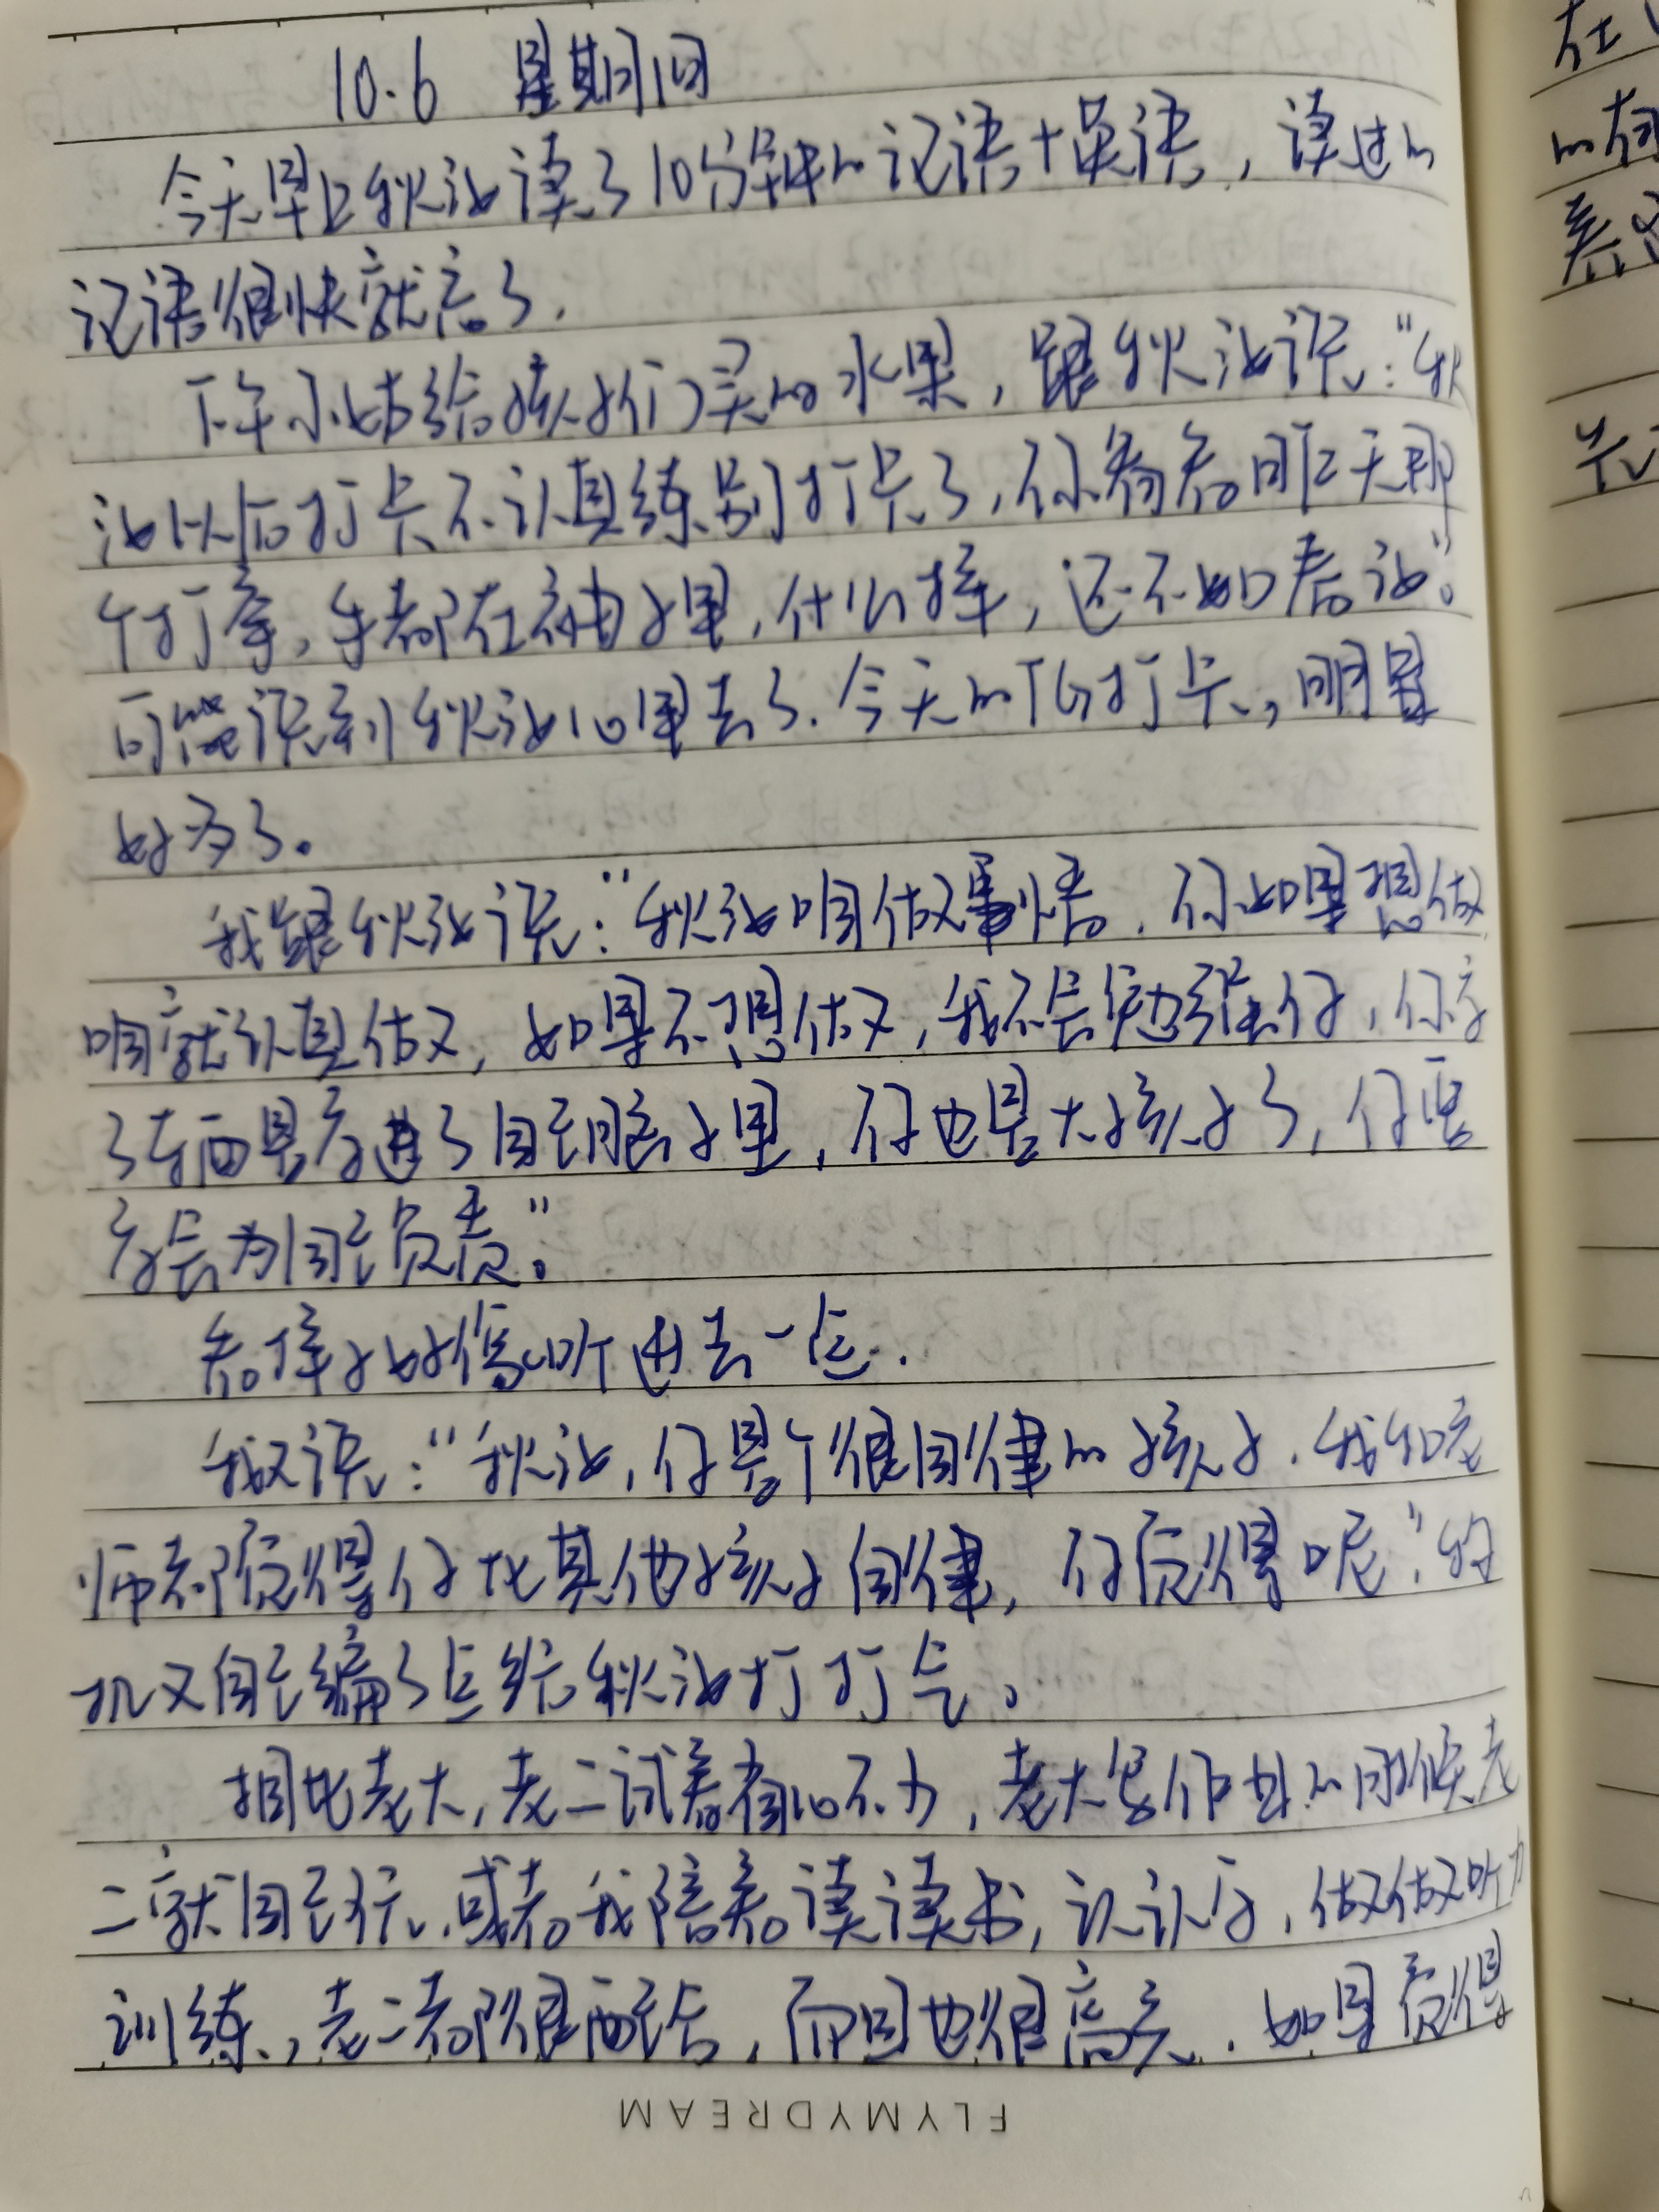 10.6 星期四
今天早上秋汝读了10分钟的记语+英语，读过的
记语很快就忘了.
下午小姑给孩子们买的水果，跟秋汝说："秋
汝以后打卡不认真练别打卡了，你看看昨天那
个打拳，手都在袖子里，什么拳，还不如春汝"。
可能说到秋汝心里去了.今天的下午打卡，明显
好多了。
我跟秋汝说："秋汝咱做事情，你如果想做
咱就认真做，如果不想做，我不会勉强你，你学
了东西是学进了自己脑子里，你也是大孩子了，你要
学会为自己负责。"
看样子好像听进去一点.
我又说："秋汝，你是个很自律的孩子.我和老
师都觉得你比其他孩子自律，你觉得呢"的
又自己编了点给秋汝打打气。
相比老大，老二试着有心不力，老大写作业的时候老
二就自己玩.或者我陪着读读书，认认字，做做听力
训练，老二都很配合，而且也很高兴.如果觉得
FLYMYDREAM
在
的有
差